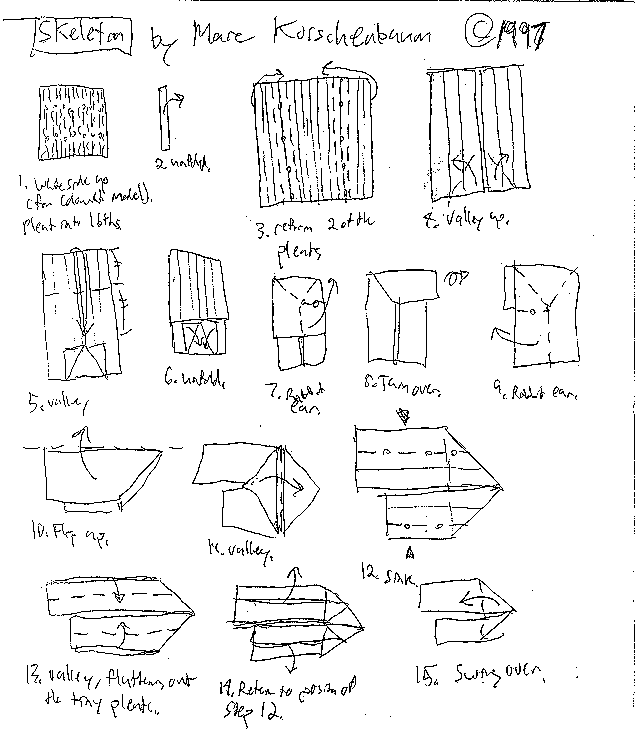 Skeleton by Marc Kirschenbaum © 1997
1. White side up
(for colored model).
pleat into 16ths
2 unfold.
3. return 2 of the
pleats
4. valley up.
5. valley
6. unfold.
7. Rabbit
ear.
8. Turn over.
9. Rabbit ear.
10. Flip up.
11. valley.
12. Sink.
13. valley, flattening out
the tiny pleats.
14. Return to position of
Step 12.
15. Swing over.